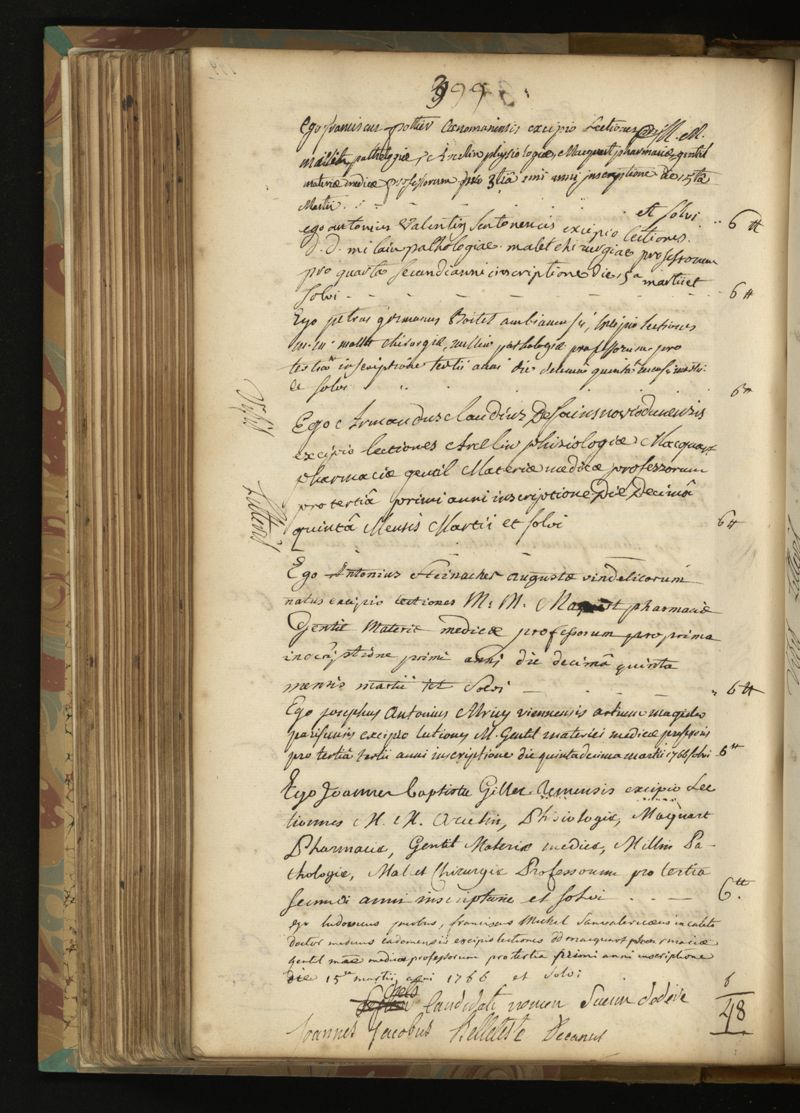 399
Ego franciscus pottier Cenomanensis excipio Lectiones M. M.
pathologiæ, Arcelin physiologiæ, Macquart pharmaciæ, gentil
materiæ medicæ professorum pro 3tiâ inscriptione die 15ta
Martii . . et solvi 6 ₶
ego antonius Valentin excipio lectiones
D. D. milain pathologiae. malet chirurgiae professorum
pro quarta secundi anni inscriptione die 15a martii et
solvi - - - - - 6 ₶
Ego petrus germanus Boitel ambianensis, excipio lectiones
m. m. mallet chirorgiæ, millin pathologiæ professorum pro
tertiâ inscriptione tertii anni die decimâ quintâ mensis martii
et solvi 6 ₶
Ego Armandus claudius Desains noviodunensis
excipio lectiones Arcelin phisiologiæ Macquart
pharmaciæ gentil Materiæ medicæ professorum
pro tertiâ primi anni inscriptione Die Decimâ
quintâ Mensis Martii et solvi 6 ₶
Ego Antonius Steinacher augustæ vindelicorum
natus excipio lectiones M. M. pharmaciæ
Gentil Materiæ medicæ professorum pro prima
inscriptione primi anni die decimâ quinta
mensis martii et solvi - - - 6 ₶
Ego josephus Antonius viennensis artium magister
parisiensis excipio lectiones M. Gentil materiei medicæ professoris
pro tertiâ tertii anni inscriptione die quintadecima martii 1766 solvi 6 ₶
Ego Joannes Baptista Gillet Remensis excipio Lec
tiones M. M. Arcelin, Phisiologiæ, Maquart
Pharmaciæ, Gentil Materiæ medicæ, Millin Pa-
thologiæ, Malet Chirurgiæ Professorum pro tertia
secundi anni inscriptione et solvi . . . - 6 ₶.
ego ludovicus franciscus Michel
doctor medicus cadomensis excipio lectiones DD macquart pharmaciæ
gentil mæ medicæ professorum pro tertia primi anni inscriptione
die 15ta martii anni 1766 et solvi 6
octo Candidati nomen suum dedere 48
Joannes Jacobus Belleteste Decanus